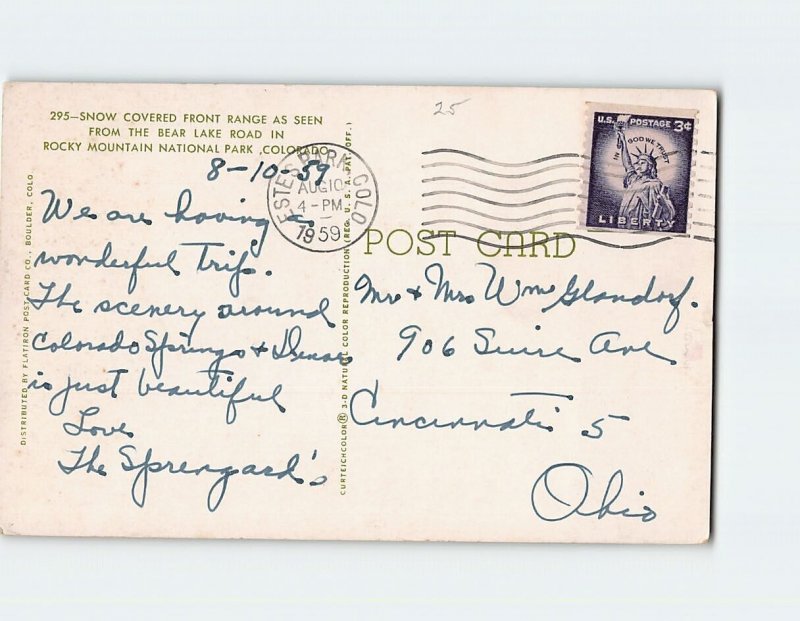 25
295—SNOW COVERED FRONT RANGE AS SEEN
FROM THE BEAR LAKE ROAD IN
ROCKY MOUNTAIN NATIONAL PARK, COLORADO
8-10-59
We are having a
wonderful trip.
The scenery around
Colorado Springs & Denver
is just beautiful
Love
The Sprengard's
DISTRIBUTED BY FLATIRON POST CARD CO., BOULDER, COLO.
CURTEICHCOLOR® 3-D NATURAL COLOR REPRODUCTION (REG. U. S. A. PAT. OFF.)
ESTES PARK, COLO
AUG 10
4-PM
1959
U.S. POSTAGE 3¢
IN GOD WE TRUST
LIBERTY
POST CARD
Mr & Mrs Wm Glandorf.
906 Suire Ave
Cincinnati 5
Ohio